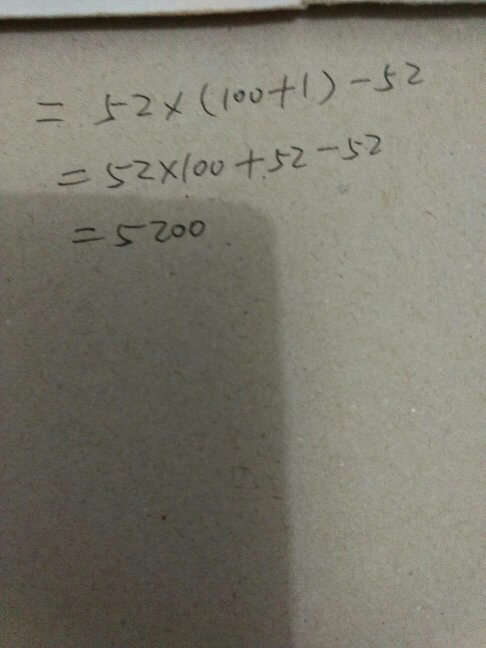 = 52×(100+1)-52
= 52×100+52-52
= 5200